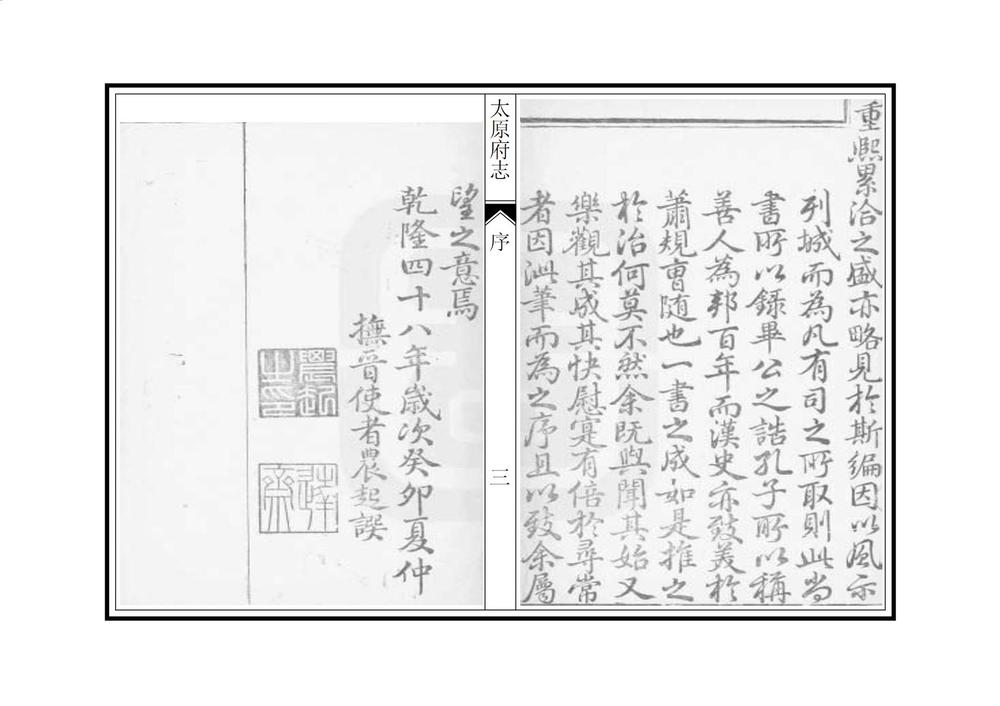 重熙累洽之盛亦略見於斯編因以風示
列城而為凡有司之所取則此尚
書所以錄畢公之誥孔子所以稱
善人為邦百年而漢史亦致美於
蕭規曹隨也一書之成如是推之
於治何莫不然余既與聞其始又
樂觀其成其快慰寔有倍於尋常
者因泚筆而為之序且以致余屬
太原府志
序
三
望之意焉
乾隆四十八年歲次癸卯夏仲
撫晉使者農起譔
農起之印